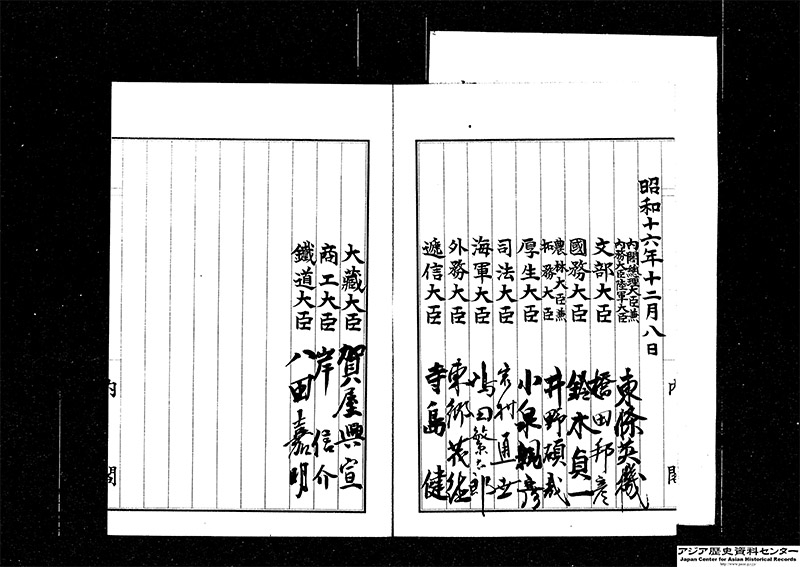 昭和十六年十二月八日
内閣總理大臣兼
内務大臣陸軍大臣
東條英機
文部大臣 橋田邦彦
國務大臣 鈴木貞一
農林大臣兼
拓務大臣
井野碩哉
厚生大臣 小泉親彦
司法大臣 岩村通世
海軍大臣 嶋田繁太郎
外務大臣 東郷茂徳
遞信大臣 寺島健
大藏大臣 賀屋興宣
商工大臣 岸信介
鐵道大臣 八田嘉明
内閣
内閣
アジア歴史資料センター
Japan Center for Asian Historical Records
http://www.jacar.go.jp